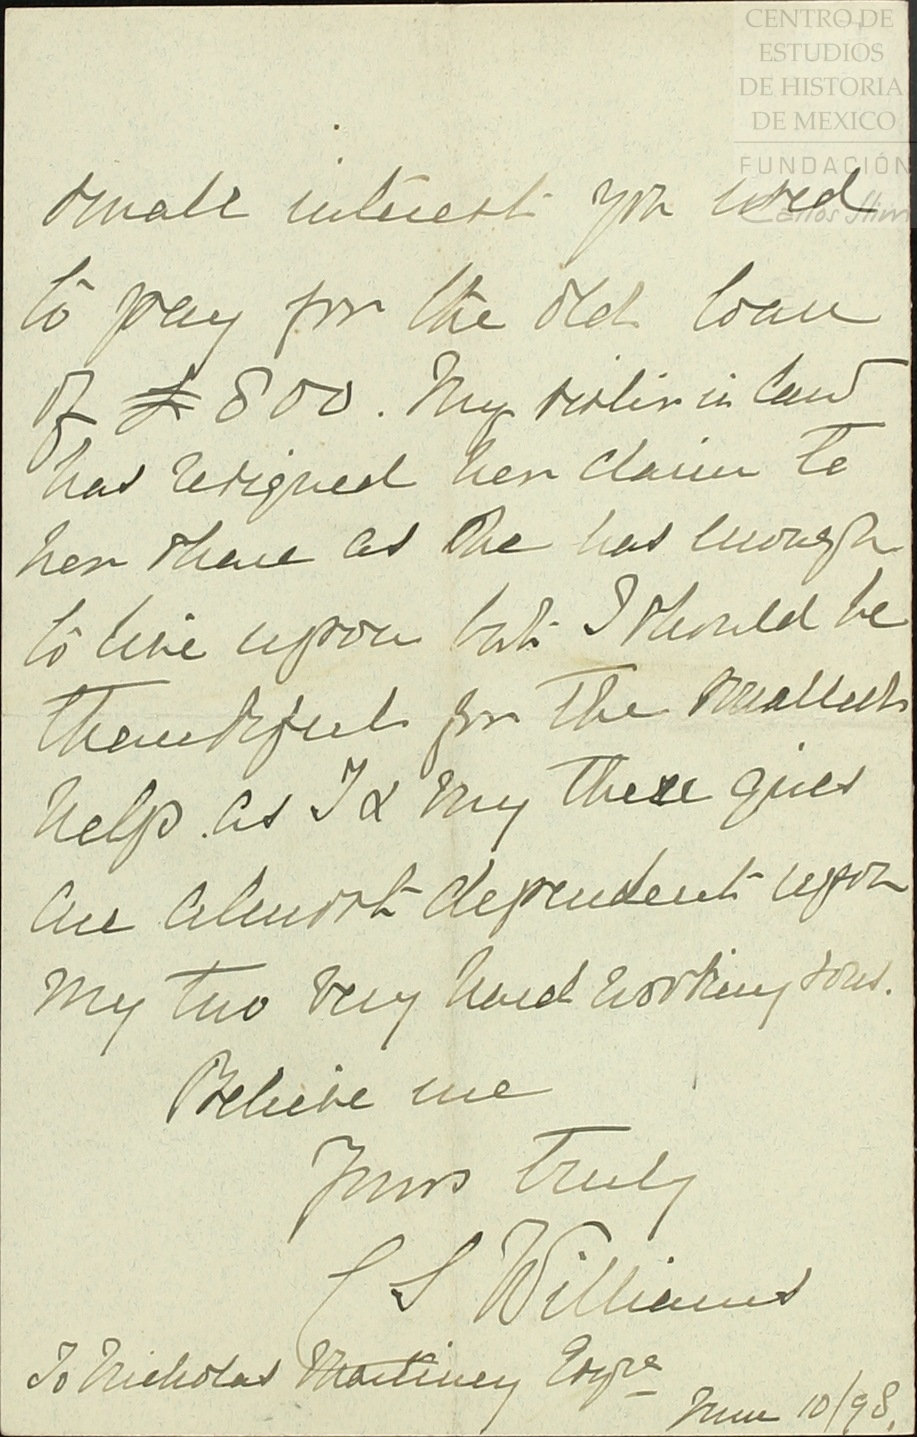 CENTRO DE
ESTUDIOS
DE HISTORIA
DE MEXICO
FUNDACIÓN
Carlos Slim
small interest you used
to pay for the old loan
of £800. My sister in law
has resigned her claim to
her share as she has enough
to live upon but I should be
thankful for the smallest
help as I & my three girls
are almost dependent upon
my two very hard working sons.
Believe me
Yours truly
C S Williams
To Nicholas Martiney Esqre
June 10/98.